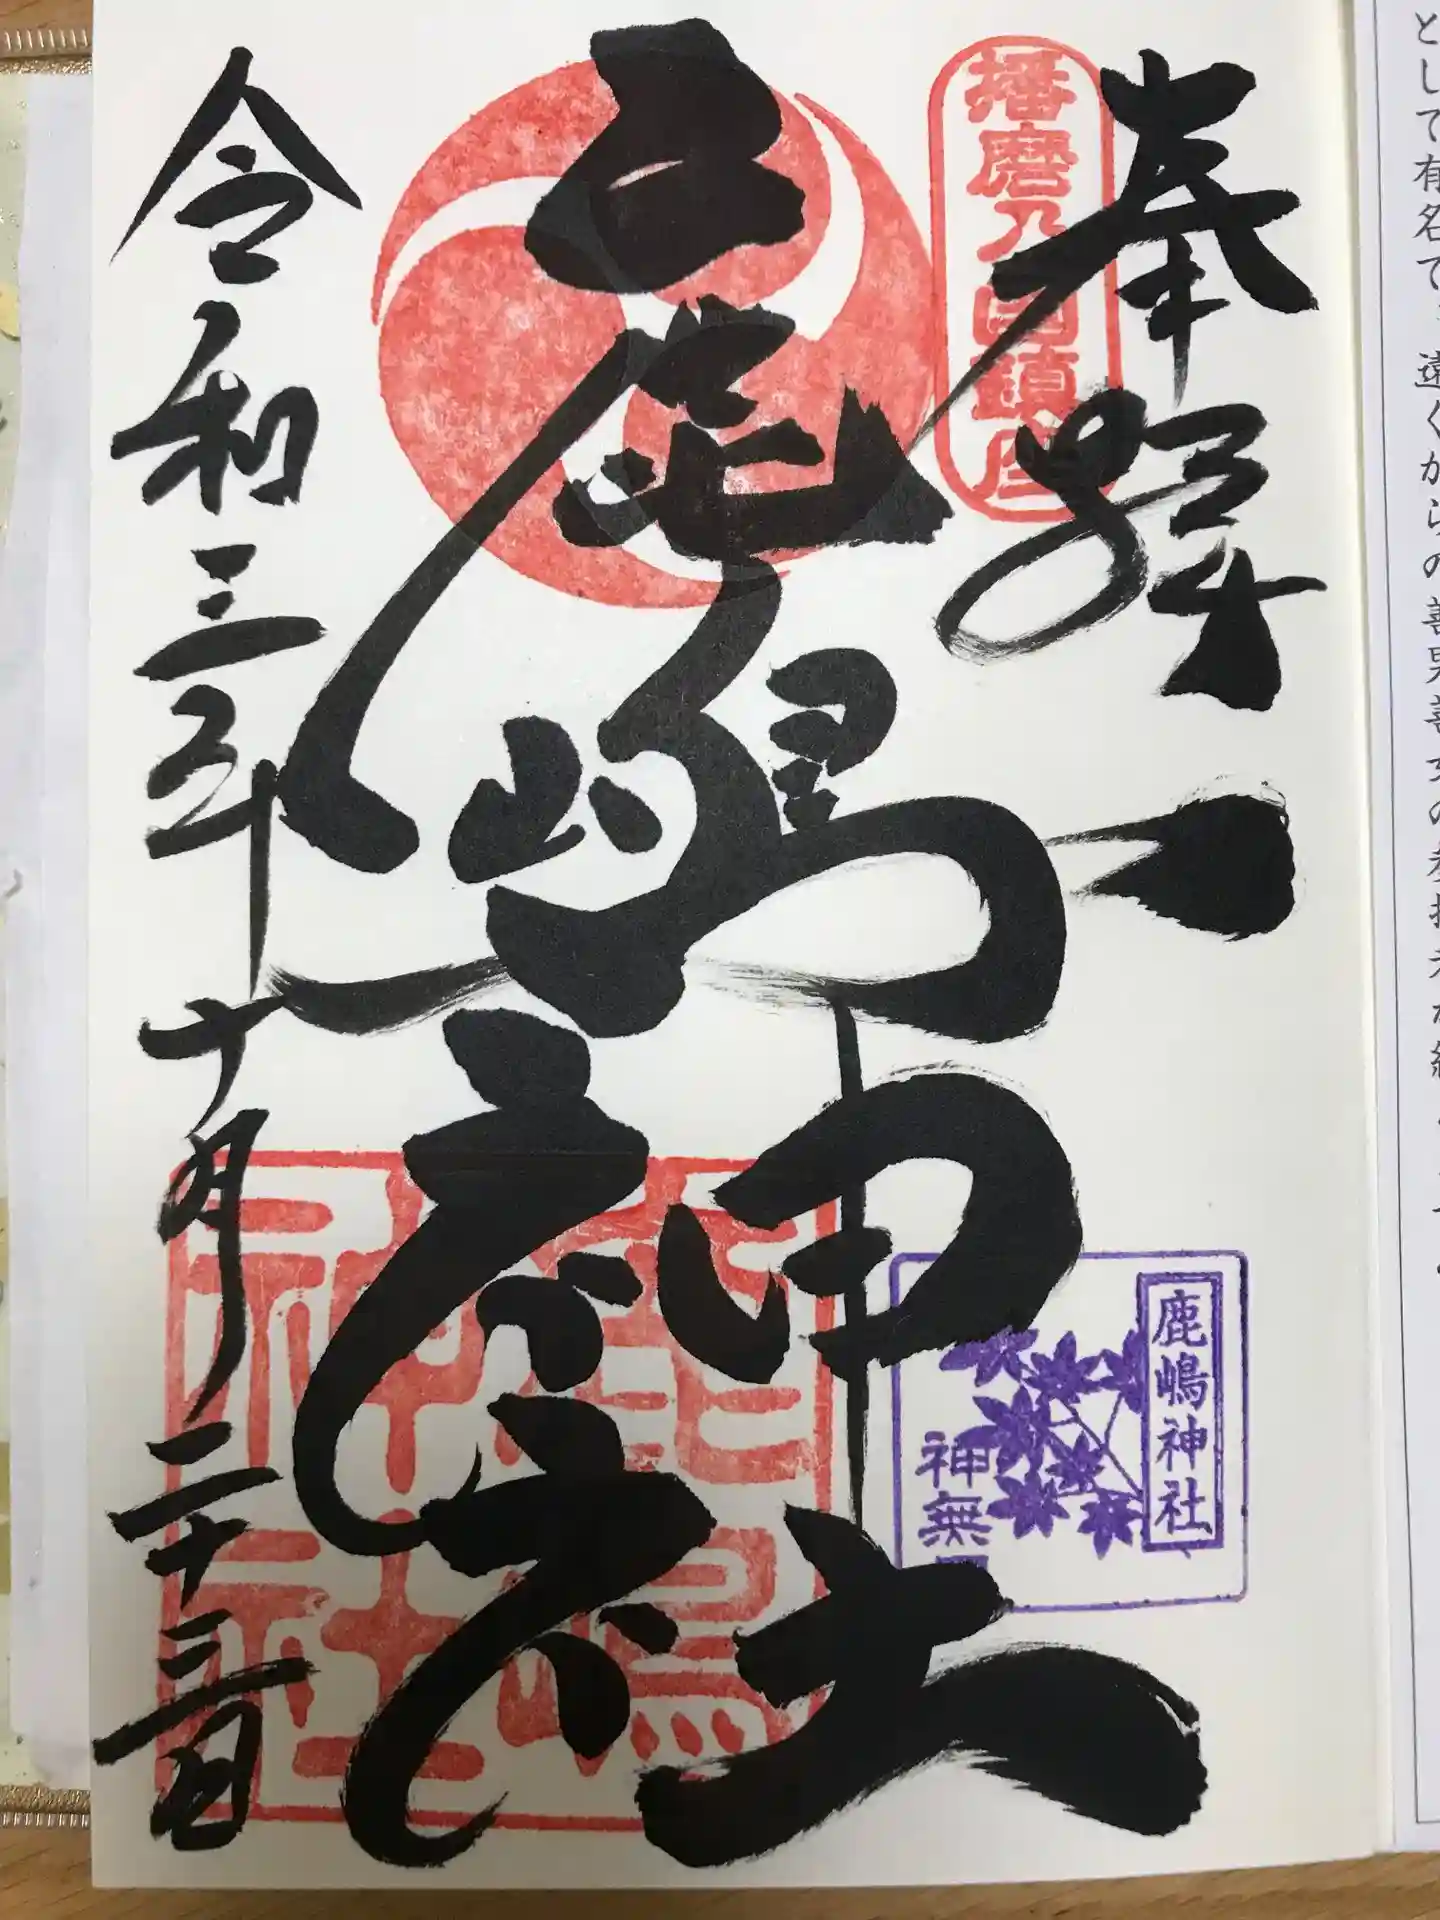 として有名で、遠くからの善男善女の参拝
奉拜
播磨乃国鎮座
鹿嶋神社
鹿嶋神社
鹿嶋神社
神無
令和三年十月二十三日